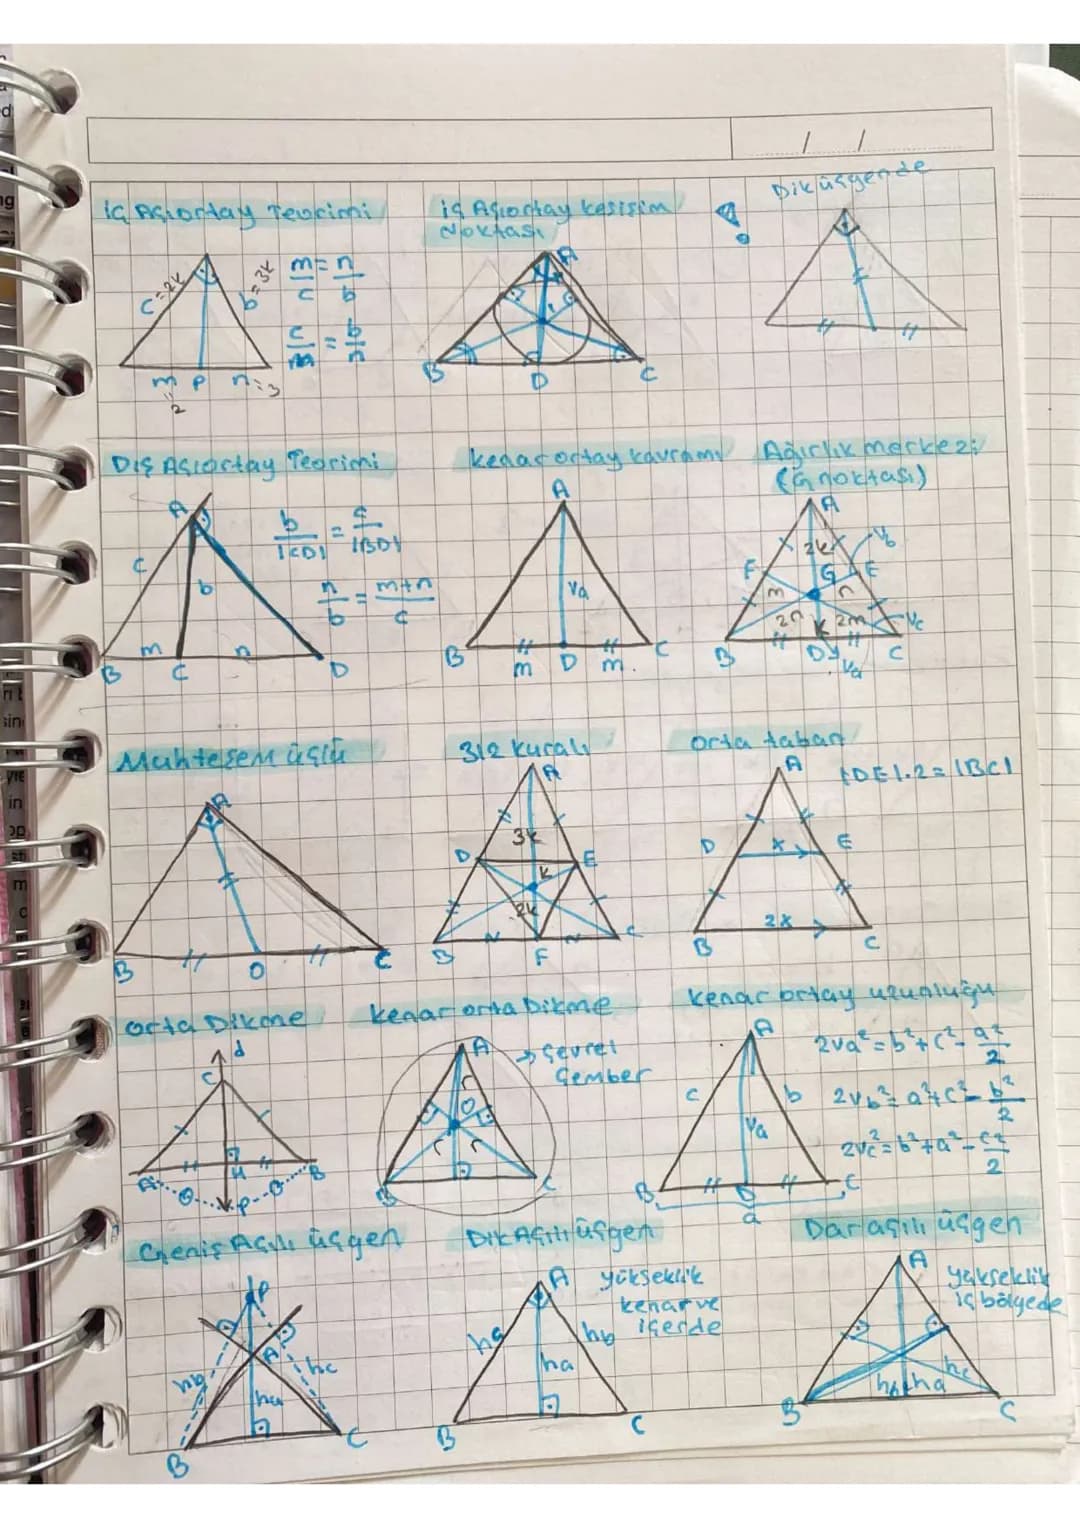 / /
İç Açıortay Teorimi
c=2k
b=3k
m/c = n/b
c/m = b/n
m P n=3
=2
iç Açıortay kesişim
Noktası
A
B D C
!
Dik üçgende
Dış Açıortay Teorimi
A
c b
B m C n D
b/|CD| = c/|BD|
n/b = m+n/c
kenarortay kavramı
A
Va
B D C
m m
Ağırlık merkezi
(G noktası)
A
2k Vb
F G E
m n
2n k 2m Vc
B D C
Va
Muhteşem üçlü
A
B D C
312 kuralı
A
3k
D E
k
2k
B F C
Orta taban
A
|DE|.2=|BC|
D x E
2x
B C
Orta Dikme
d
C
A H B
P
Kenar orta Dikme
A
→ Çevrel
Çember
r
O
r r
B C
Kenar ortay uzunluğu
A
c b
Va
B D C
a
2va²=b²+c²-a²/2
2vb²=a²+c²-b²/2
2vc²=b²+a²-c²/2
Geniş Açılı üçgen
P
A
hb hc
ha
B C
Dik Açılı üçgen
A
yükseklik
kenar ve
içerde
hc hb
ha
B C
Dar açılı üçgen
A
yükseklik
iç bölgede
hb ha hc
B C